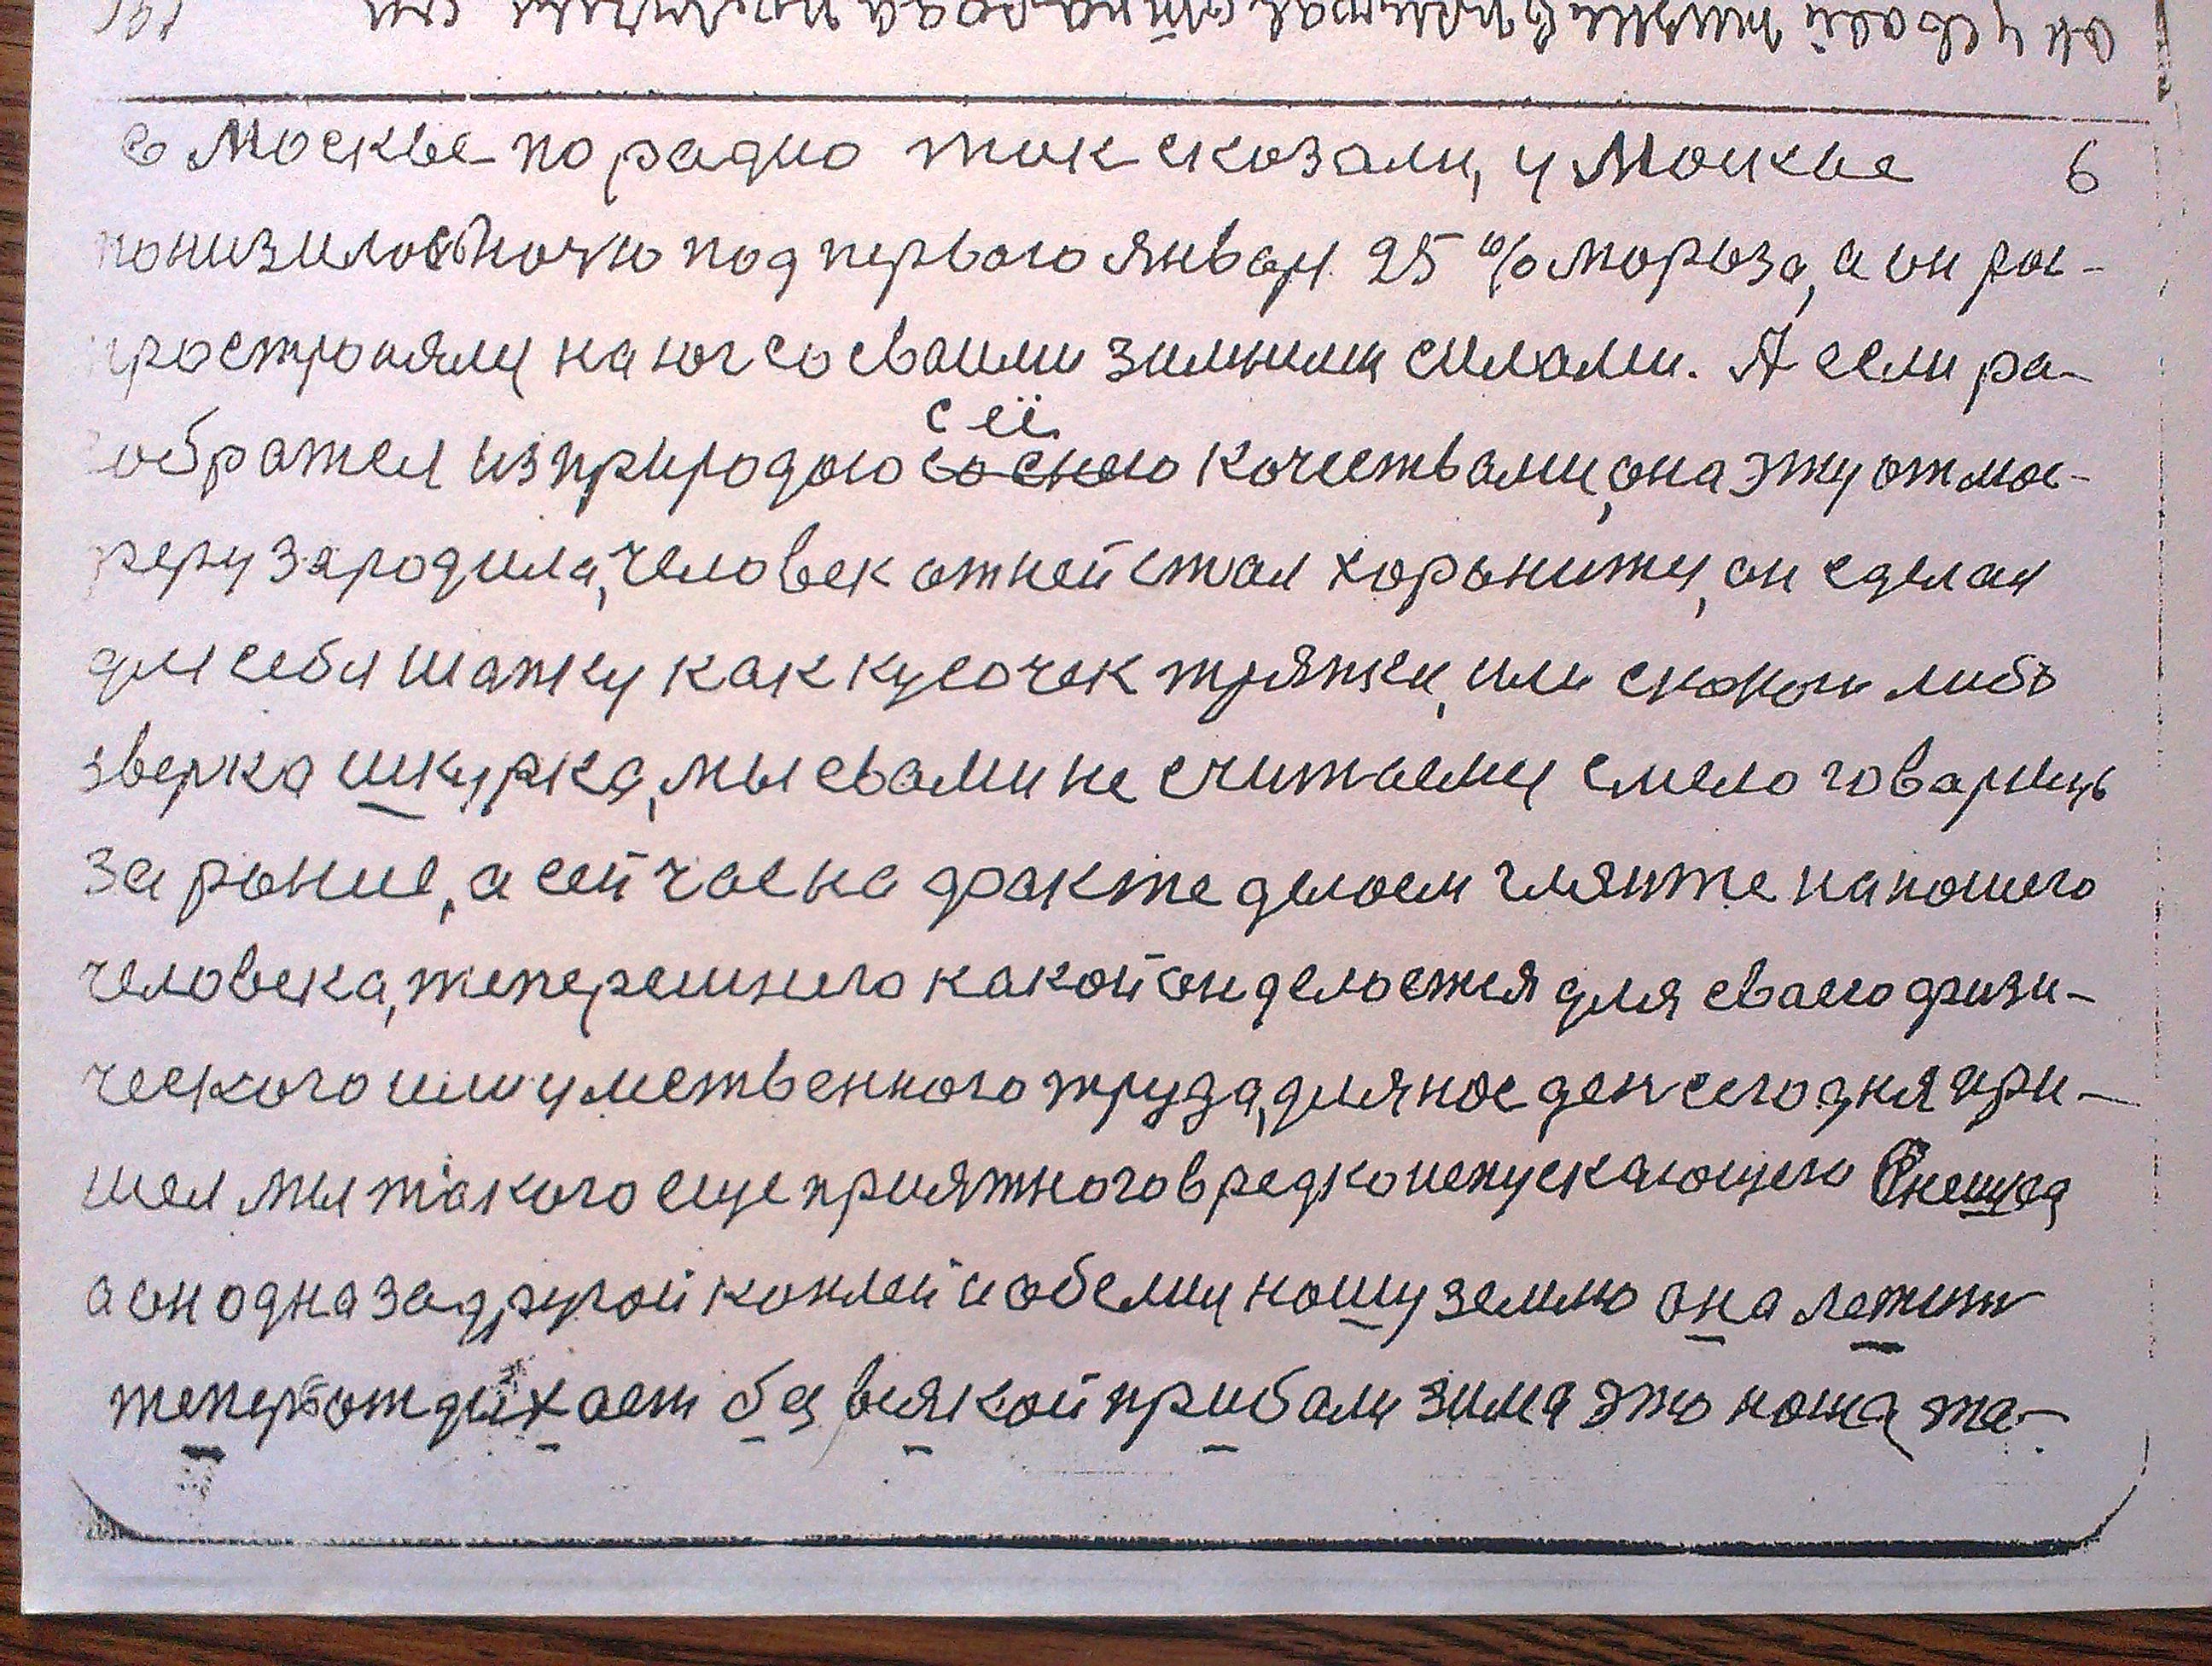 в Москве по радио так сказали, у Москве 6
понизилось ночью под первого январ 25 % мороза, а он рас-
ространяли на юг со сваими зимними силами. А если ра-
зображел из природою с её качествами, она эту отмос-
феру зародила, человек от ней стал хоранити, он сделал
для себя шапку как кусочек тряпки, или с какой либ
зверка шкурка, мы с вами не считаеми смело говариць
за рание, а сейчас на факте делаем гляньте на нашего
человека, теперешнего какой он делается для сваего физи-
ческого или умственного труда, для нас ден сегодня при-
шел мы такого еще приятного в редко непускающего
а он одна за другой каплей и обелили нашу землю она лежить
теперь отдыхает без всякой прибали зима это наша та-